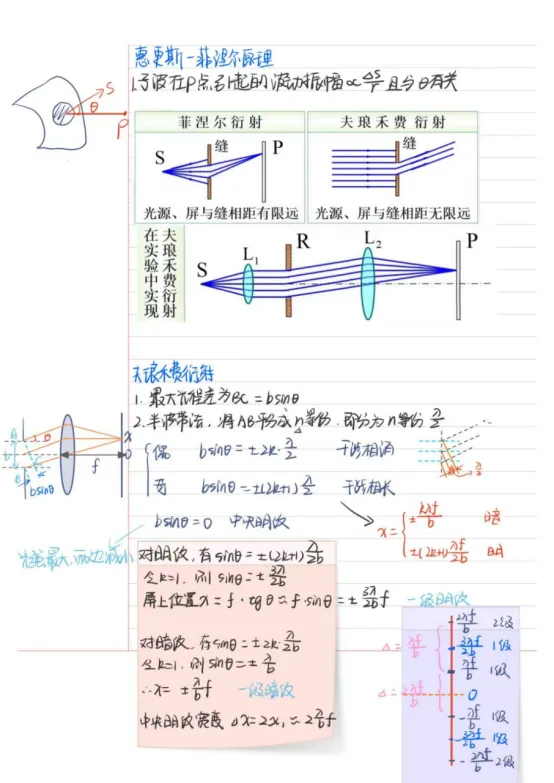 惠更斯-菲涅尔原理
1.子波在P点引起的波动振幅∝ΔS/r 且与θ有关
S
θ
P
菲涅尔衍射
夫琅禾费衍射
缝
S
P
缝
光源、屏与缝相距有限远
光源、屏与缝相距无限远
在实验中实现
夫琅禾费衍射
S
L₁
R
L₂
P
夫琅禾费衍射
1. 最大光程差为BC = bsinθ
2. 半波带法, 将AB平均成n等份, 即分为n等份 λ/2
偶 bsinθ = ±2k·λ/2 干涉相消
奇 bsinθ = ±(2k+1)λ/2 干涉相长
bsinθ = 0 中央明纹
θ
x
0
f
b
B
bsinθ
λ/2
x = { ±kλf/b 暗
±(2k+1)λf/2b 明
光强最大, 两边减小
对明纹, 有 sinθ = ±(2k+1)λ/2b
令k=1, 则 sinθ = ±3λ/2b
屏上位置x = f·tgθ ≈ f·sinθ = ±3λ/2b f 一级明纹
对暗纹, 有 sinθ = ±2k·λ/2b
令k=1, 则 sinθ = ±λ/b
∴x = ±λ/b f 一级暗纹
中央明纹宽度 Δx = 2x₁ ≈ 2λ/b f
2λf/b 2级
3λf/2b 1级
λf/b 1级
0
-λf/b 1级
-3λf/2b 1级
-2λf/b 2级
Δ = λf/b
Δ = 2λf/b